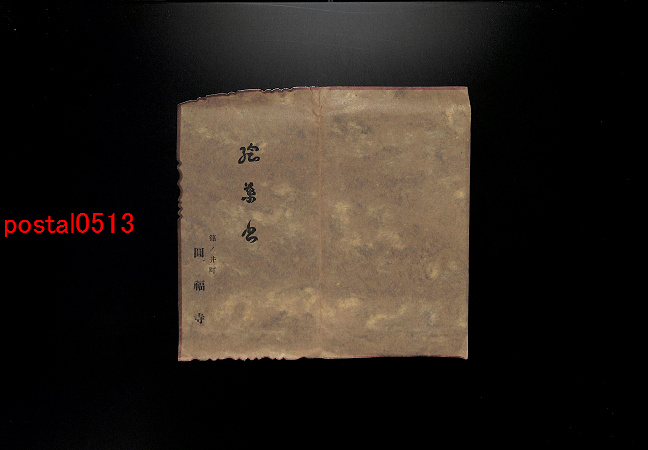 絵葉書
篠ノ井町
開福寺
postal0513